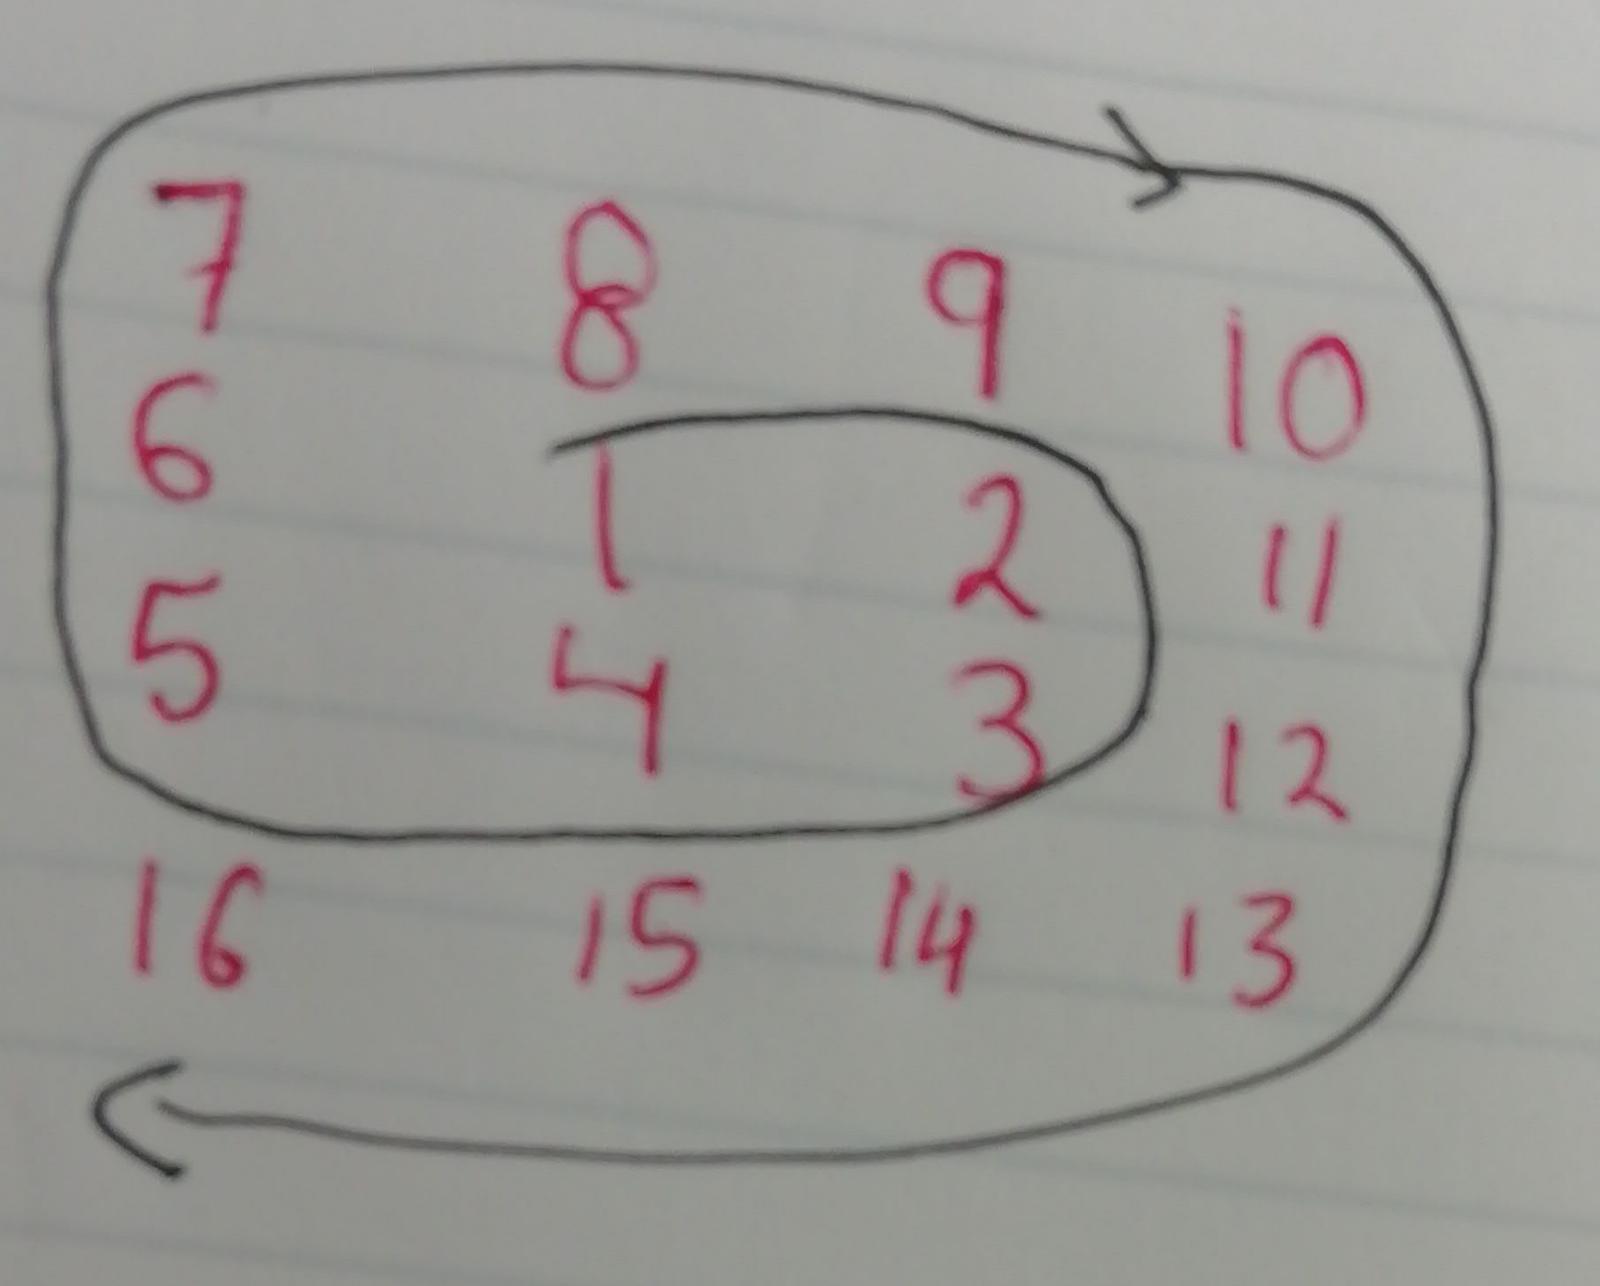 7 8 9 10
6 1 2 11
5 4 3 12
16 15 14 13